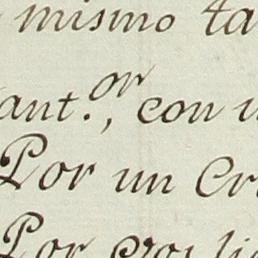 mismo ta
ant.or, con u
Por un Cr
Por